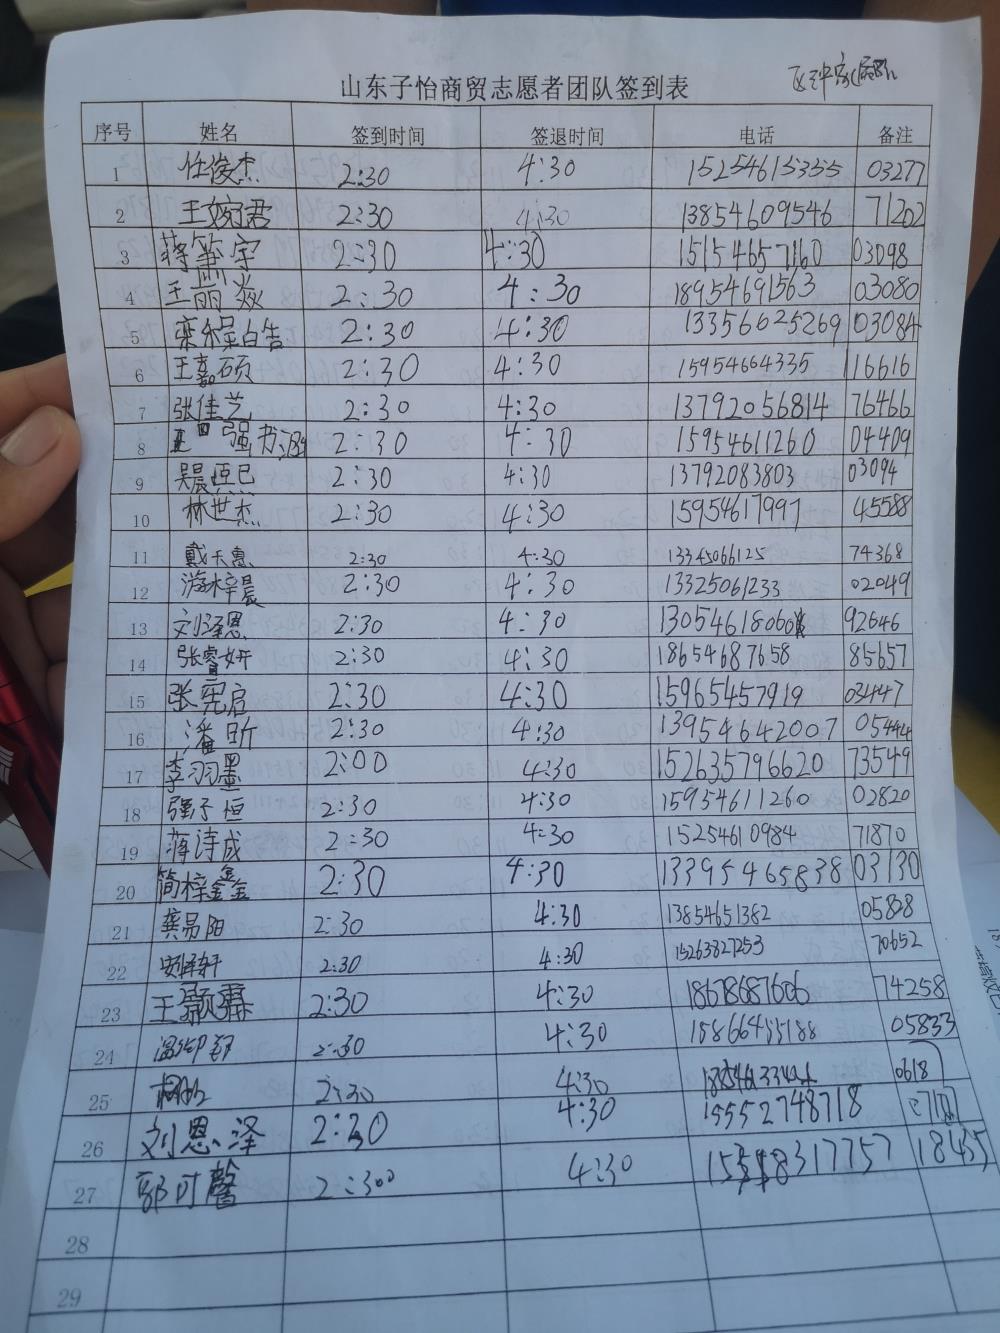 山东子怡商贸志愿者团队签到表
序号 姓名 签到时间 签退时间 电话 备注
1 任俊杰 2:30 4:30 15254615355 03277
2 王婉君 2:30 4:30 13854609546 71202
3 蒋箫宇 2:30 4:30 15154657160 03098
4 王丽焱 2:30 4:30 18954691563 03080
5 栾程皓 2:30 4:30 13356625269 03084
6 王嘉硕 2:30 4:30 15954664335 16616
7 张佳艺 2:30 4:30 13792056814 76466
8 2:30 4:30 15954611260 04409
9 吴晨 2:30 4:30 13792083803 03094
10 林世杰 2:30 4:30 15954617997 45588
11 戴天惠 2:30 4:30 13345066125 74368
12 游梓晨 2:30 4:30 13325061233 02049
13 刘泽恩 2:30 4:30 13054618060 92646
14 张睿妍 2:30 4:30 18654687658 85657
15 张宪启 2:30 4:30 15965457919 03447
16 潘昕 2:30 4:30 13954642007 05444
17 李羽墨 2:00 4:30 152635796620 73549
18 强子恒 2:30 4:30 15954611260 02820
19 蒋诗成 2:30 4:30 15254610984 71870
20 简梓鑫 2:30 4:30 13395465838 03130
21 龚易阳 2:30 4:30 13854651382 05808
22 2:30 4:30 15263827253 70652
23 王颢霖 2:30 4:30 18678687606 74258
24 2:30 4:30 15866455188 05833
25 2:30 4:30
26 刘恩泽 2:30 4:30 15552748718
27 郭可馨 2:30 4:30 18435
28
29